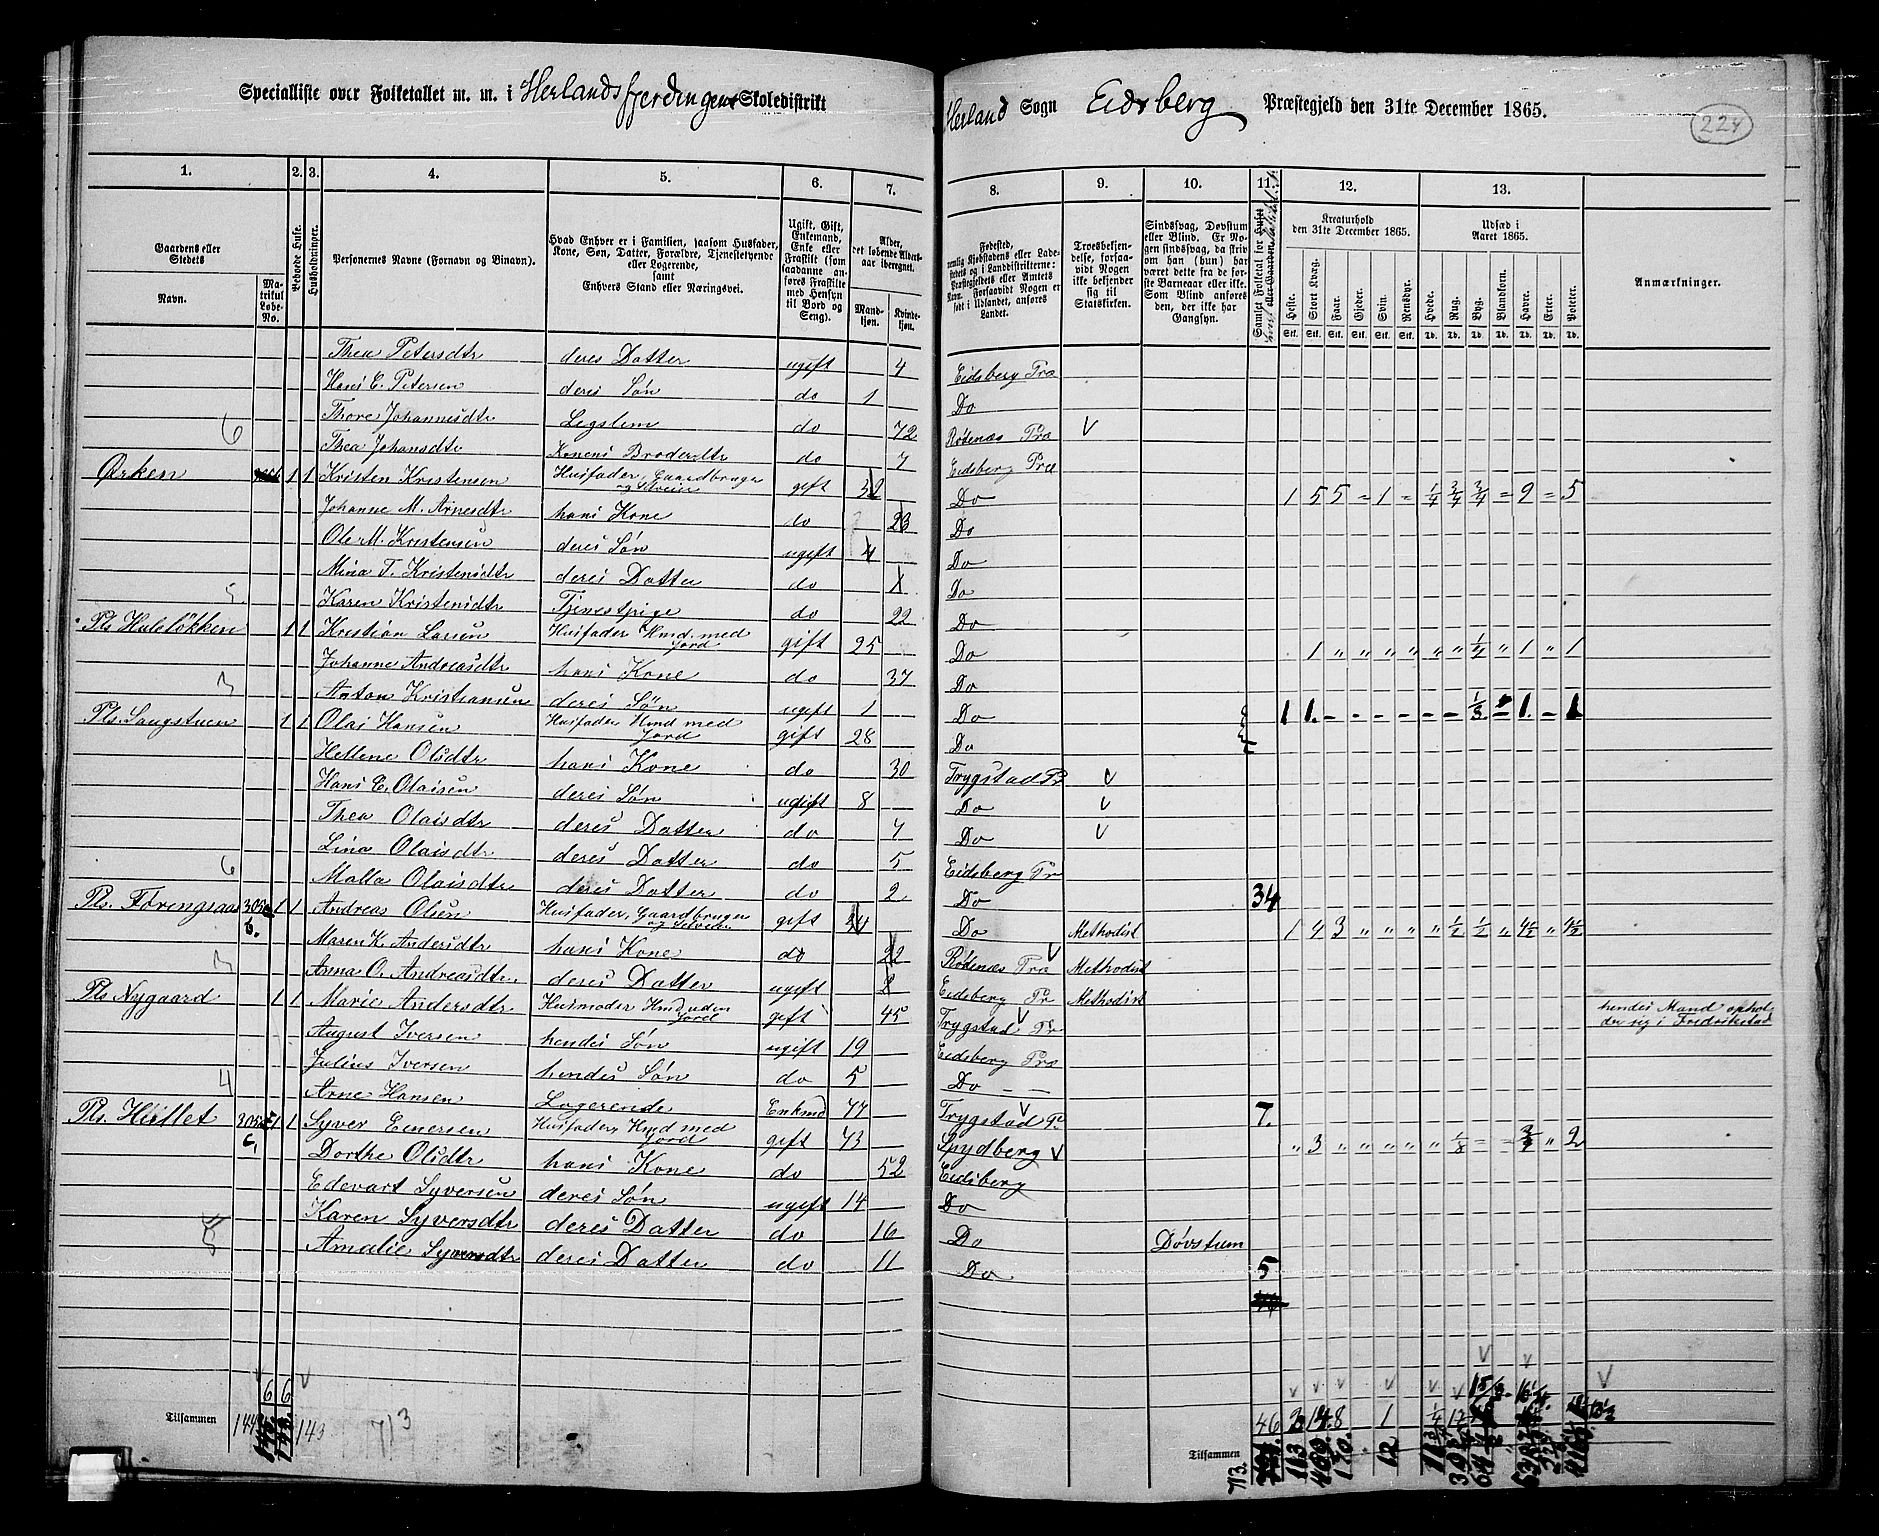 Specialliste over Folketallet m. m. i Herlandsfjerdingens Skoledistrikt
Herland Sogn Eidsberg Præstegjeld den 31te December 1865.
224
1. 2. 3. 4. 5. 6. 7.
8. 9. 10. 11. 12. 13.
Gaardens eller Stedets
Navn.
Matrikul Løbe-No.
Beboede Huse.
Husholdninger.
Personernes Navne (Fornavn og Binavn).
Hvad Enhver er i Familien, saasom Husfader, Kone, Søn, Datter, Forældre, Tjenestetyende eller Logerende, samt Enhvers Stand eller Næringsvei.
Ugift, Gift, Enkemand, Enke eller Fraskilt (som saadanne anføres Fraskilte med Hensyn til Bord og Seng).
Alder, det løbende Aldersaar iberegnet.
Mandkjøn. Kvindekjøn.
Fødested,
Troesbekjendelse, forsaavidt Nogen ikke bekjender sig til Statskirken.
Sindssvag, Døvstum eller Blind.
Kreaturhold den 31te December 1865.
Heste. Stort Kvæg. Faar. Gjeder. Svin. Rensdyr.
Udsæd i Aaret 1865.
Hvede. Rug. Byg. Blandkorn. Havre. Erter. Poteter.
Anmærkninger.
Thea Petersdtr deres Datter ugift 4 Eidsberg Præ
Hans E. Petersen deres Søn do 1 Do
6 Thore Johannesdtr Legslem do 72 Rødenæs Præ V
Thea Johansdtr Konens Broderdtr do 7 Eidsberg Præ
Ørken 1 1 Kristen Kristensen Husfader, Gaardbruger og Selveier gift 32 Do 1 5 5 = 1 = 1/4 3/4 3/4 = 9 = 5
Johanne M. Arnesdtr hans Kone do 23 Do
Ole M. Kristensen deres Søn ugift 4 Do
Mina T. Kristensdtr deres Datter do Do
5 Karen Kristensdtr Tjenestpige do 22 Do
Pls Huleløkken 1 1 Kristian Larsen Husfader Hmd. med Jord gift 25 Do 1 " " " " " " 1/2 " 1 " 1
Johanne Andreasdtr hans Kone do 37 Do
3 Anton Kristiansen deres Søn ugift 1 Do
Pls. Saugstuen 1 1 Olai Hansen Husfader Hmd med Jord gift 28 Do 1 1 - - - - - - 1/3 - 1. - 1
Hellene Olsdtr hans Kone do 30 Trygstad Pr V
Hans E. Olaisen deres Søn ugift 8 Do V
Thea Olaisdtr deres Datter do 7 Do V
Lina Olaisdtr deres Datter do 5 Eidsberg Pr
6 Malla Olaisdtr deres Datter do 2 Do 34
Pls. Førengsaas 305 b. 1 1 Andreas Olsen Husfader, Gaardbruger og Selveier gift 24 Do Methodist 1 4 3 " " " " 1/2 1/2 " 4 1/2 " 4 1/2
Maren K. Andersdtr hans Kone do 22 Rødenæs Præ V Methodist
3 Anna O. Andreasdtr. deres Datter ugift 2 Eidsberg Pr Methodist
Pls Nygaard 1 1 Marie Andersdtr Husmoder Hmd uden Jord gift 45 Trygstad Pr V hendes Mand opholder sig i Fredrikstad
August Iversen hendes Søn ugift 19 Eidsberg Præ
Julius Iversen hendes Søn do 5 Do
4 Arne Hansen Logerende Enkmd 77 Trygstad Pr V 7.
Pls. Hullet 305 c, 1 1 Syver Enersen Husfader, Hmd med Jord gift 73 Spydberg V " 3 " " " " " 1/8 = - 3/4 " 2
Dorthe Olsdtr hans Kone do 52 Eidsberg
Edevart Syversen deres Søn ugift 14 Do
Karen Syversdtr deres Datter do 16 Do Døvstum
5 Amalie Syversdtr deres Datter do 11 Do 5
6 6
Tilsammen 143 713
46 1 8 1
Tilsammen 713. 113 170. 12